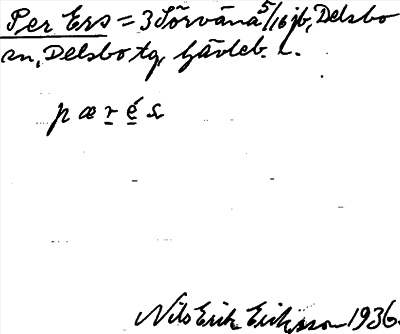 Per Ers = 3 Sörväna 5/16 jb, Delsbo
sn, Delsbo tg, Gävleb. l.
pærés
Nils Erik Eriksson 1936.